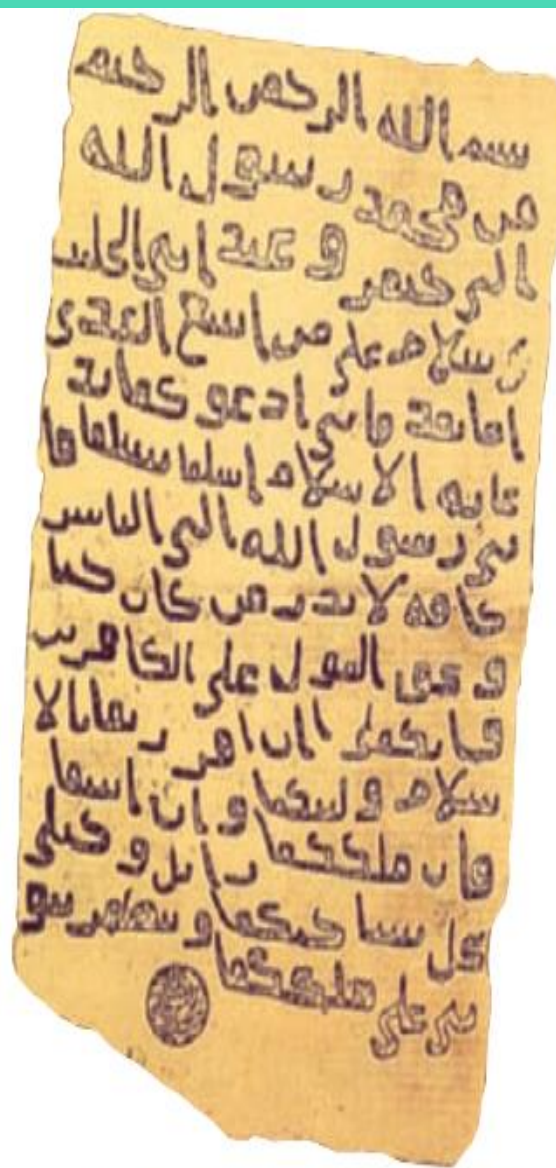 بسم الله الرحمن الرحيم
من محمد رسول الله
الى جيفر و عبد ابنى الجلند
ى السلام على من اتبع الهدى
اما بعد فانى ادعوكما بدعا
ية الاسلام اسلما تسلما فا
نى رسول الله الى الناس
كافه لانذر من كان حيا
و يحق القول على الكافرين
و انكما ان اقررتما بالا
سلام وليتكما و ان ابيتما
فان ملككما زايل و خيلى
تحل بساحتكما و تظهر نبو
تى على ملككما